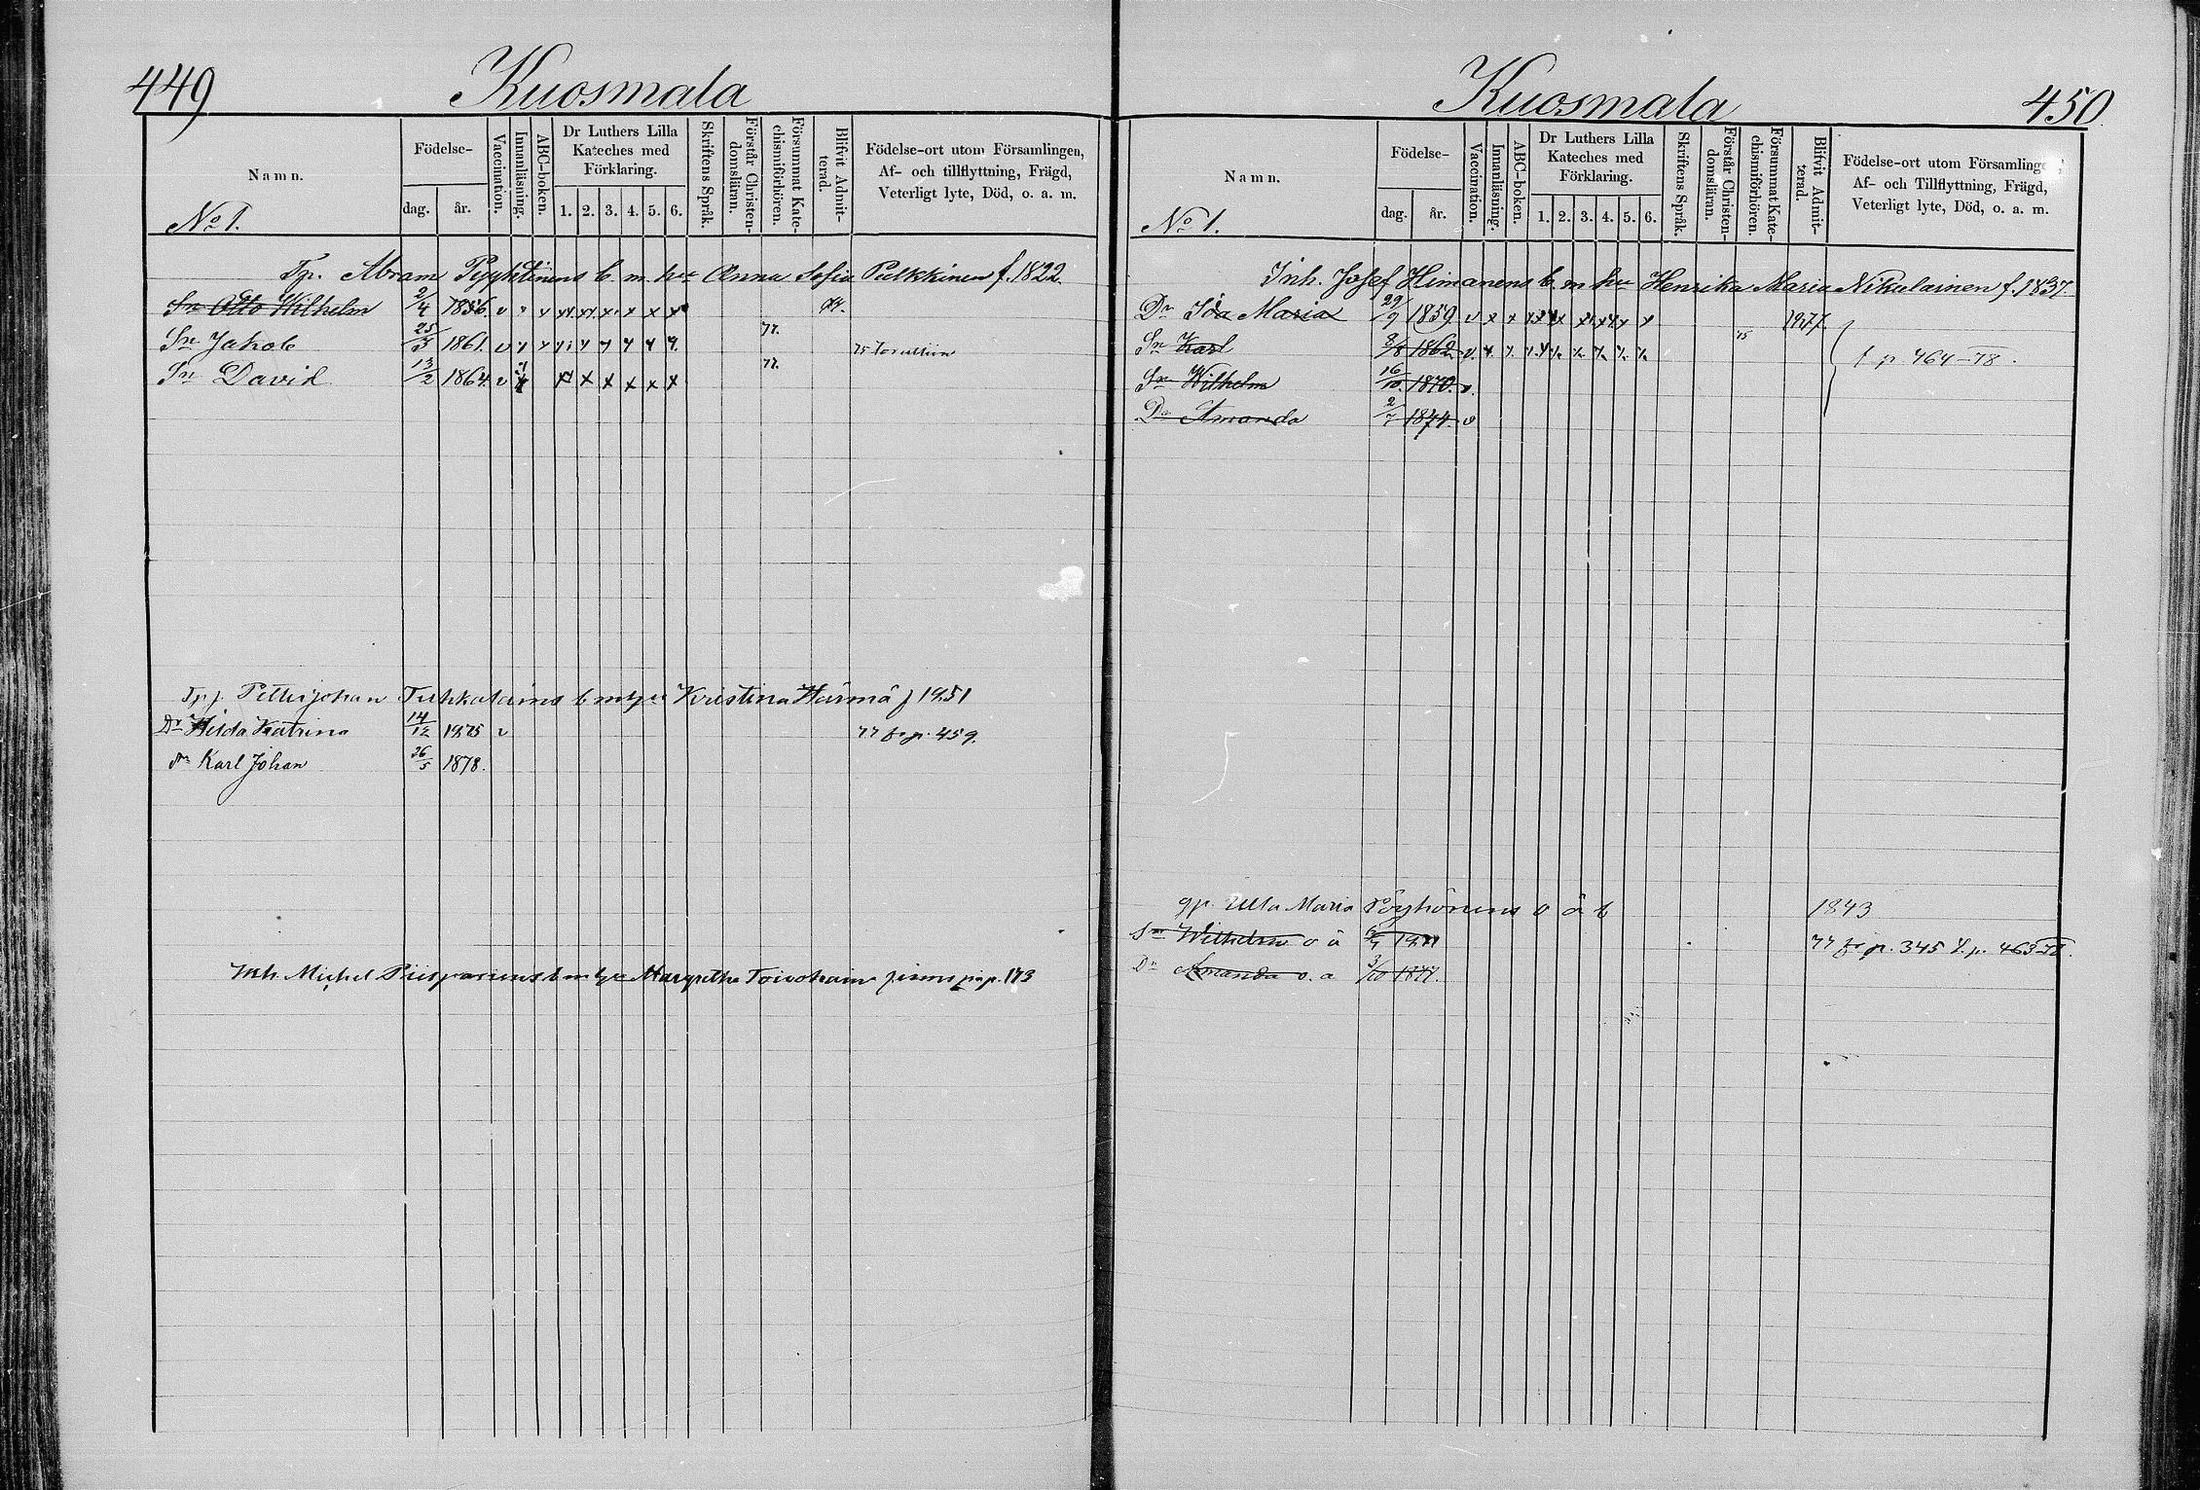 449
Kuosmala
Namn.
Födelse-
dag.
år.
Vaccination.
Innanläsning.
ABC-boken.
Dr Luthers Lilla
Kateches med
Förklaring.
1. 2. 3. 4. 5. 6.
Skriftens Språk.
Förstår Christen-
domsläran.
Försummat Kate-
chismiförhören.
Blifvit Admit-
terad.
Födelse-ort utom Församlingen,
Af- och tillflyttning, Frägd,
Veterligt lyte, Död, o. a. m.
No 1.
Tp. Abram b. m. hu Anna Sofia Pulkkinen f. 1822.
Sn Otto Wilhelm 2/4 1856. v
Sn Jakob 25/3 1861. v 77.
Sn David 13/2 1864. v 77.
Petter Johan b m hu Kristina Härmä f 1851
Dr Hilda Katrina 14/12 1875 v 77 fr p. 459.
Sn Karl Johan 26/5 1878.
Inh. Michel b m hu Margretha p. 173
Kuosmala
450
Namn.
Födelse-
dag.
år.
Vaccination.
Innanläsning.
ABC-boken.
Dr Luthers Lilla
Kateches med
Förklaring.
1. 2. 3. 4. 5. 6.
Skriftens Språk.
Förstår Christen-
domsläran.
Försummat Kate-
chismiförhören.
Blifvit Admit-
terad.
Födelse-ort utom
Af- och Tillflyttning, Frägd,
Veterligt lyte, Död, o. a. m.
No 1.
Inh. Josef Himanens b. m hu Henrika Maria Nikulainen f. 1837.
Dr Ida Maria 29/9 1859 v 1877
Sn Karl 3/8 1862 v. 75
Sn Wilhelm 16/10 1870. v.
Dr Amanda 2/7 1874. v
t p 464-78.
gp. Ulla Maria Pöyhönens o ä b 1843
Sn Wilhelm o ä 77 fr p. 345 t. p. 463-78.
Dr Amanda o. a 3/10 1877.